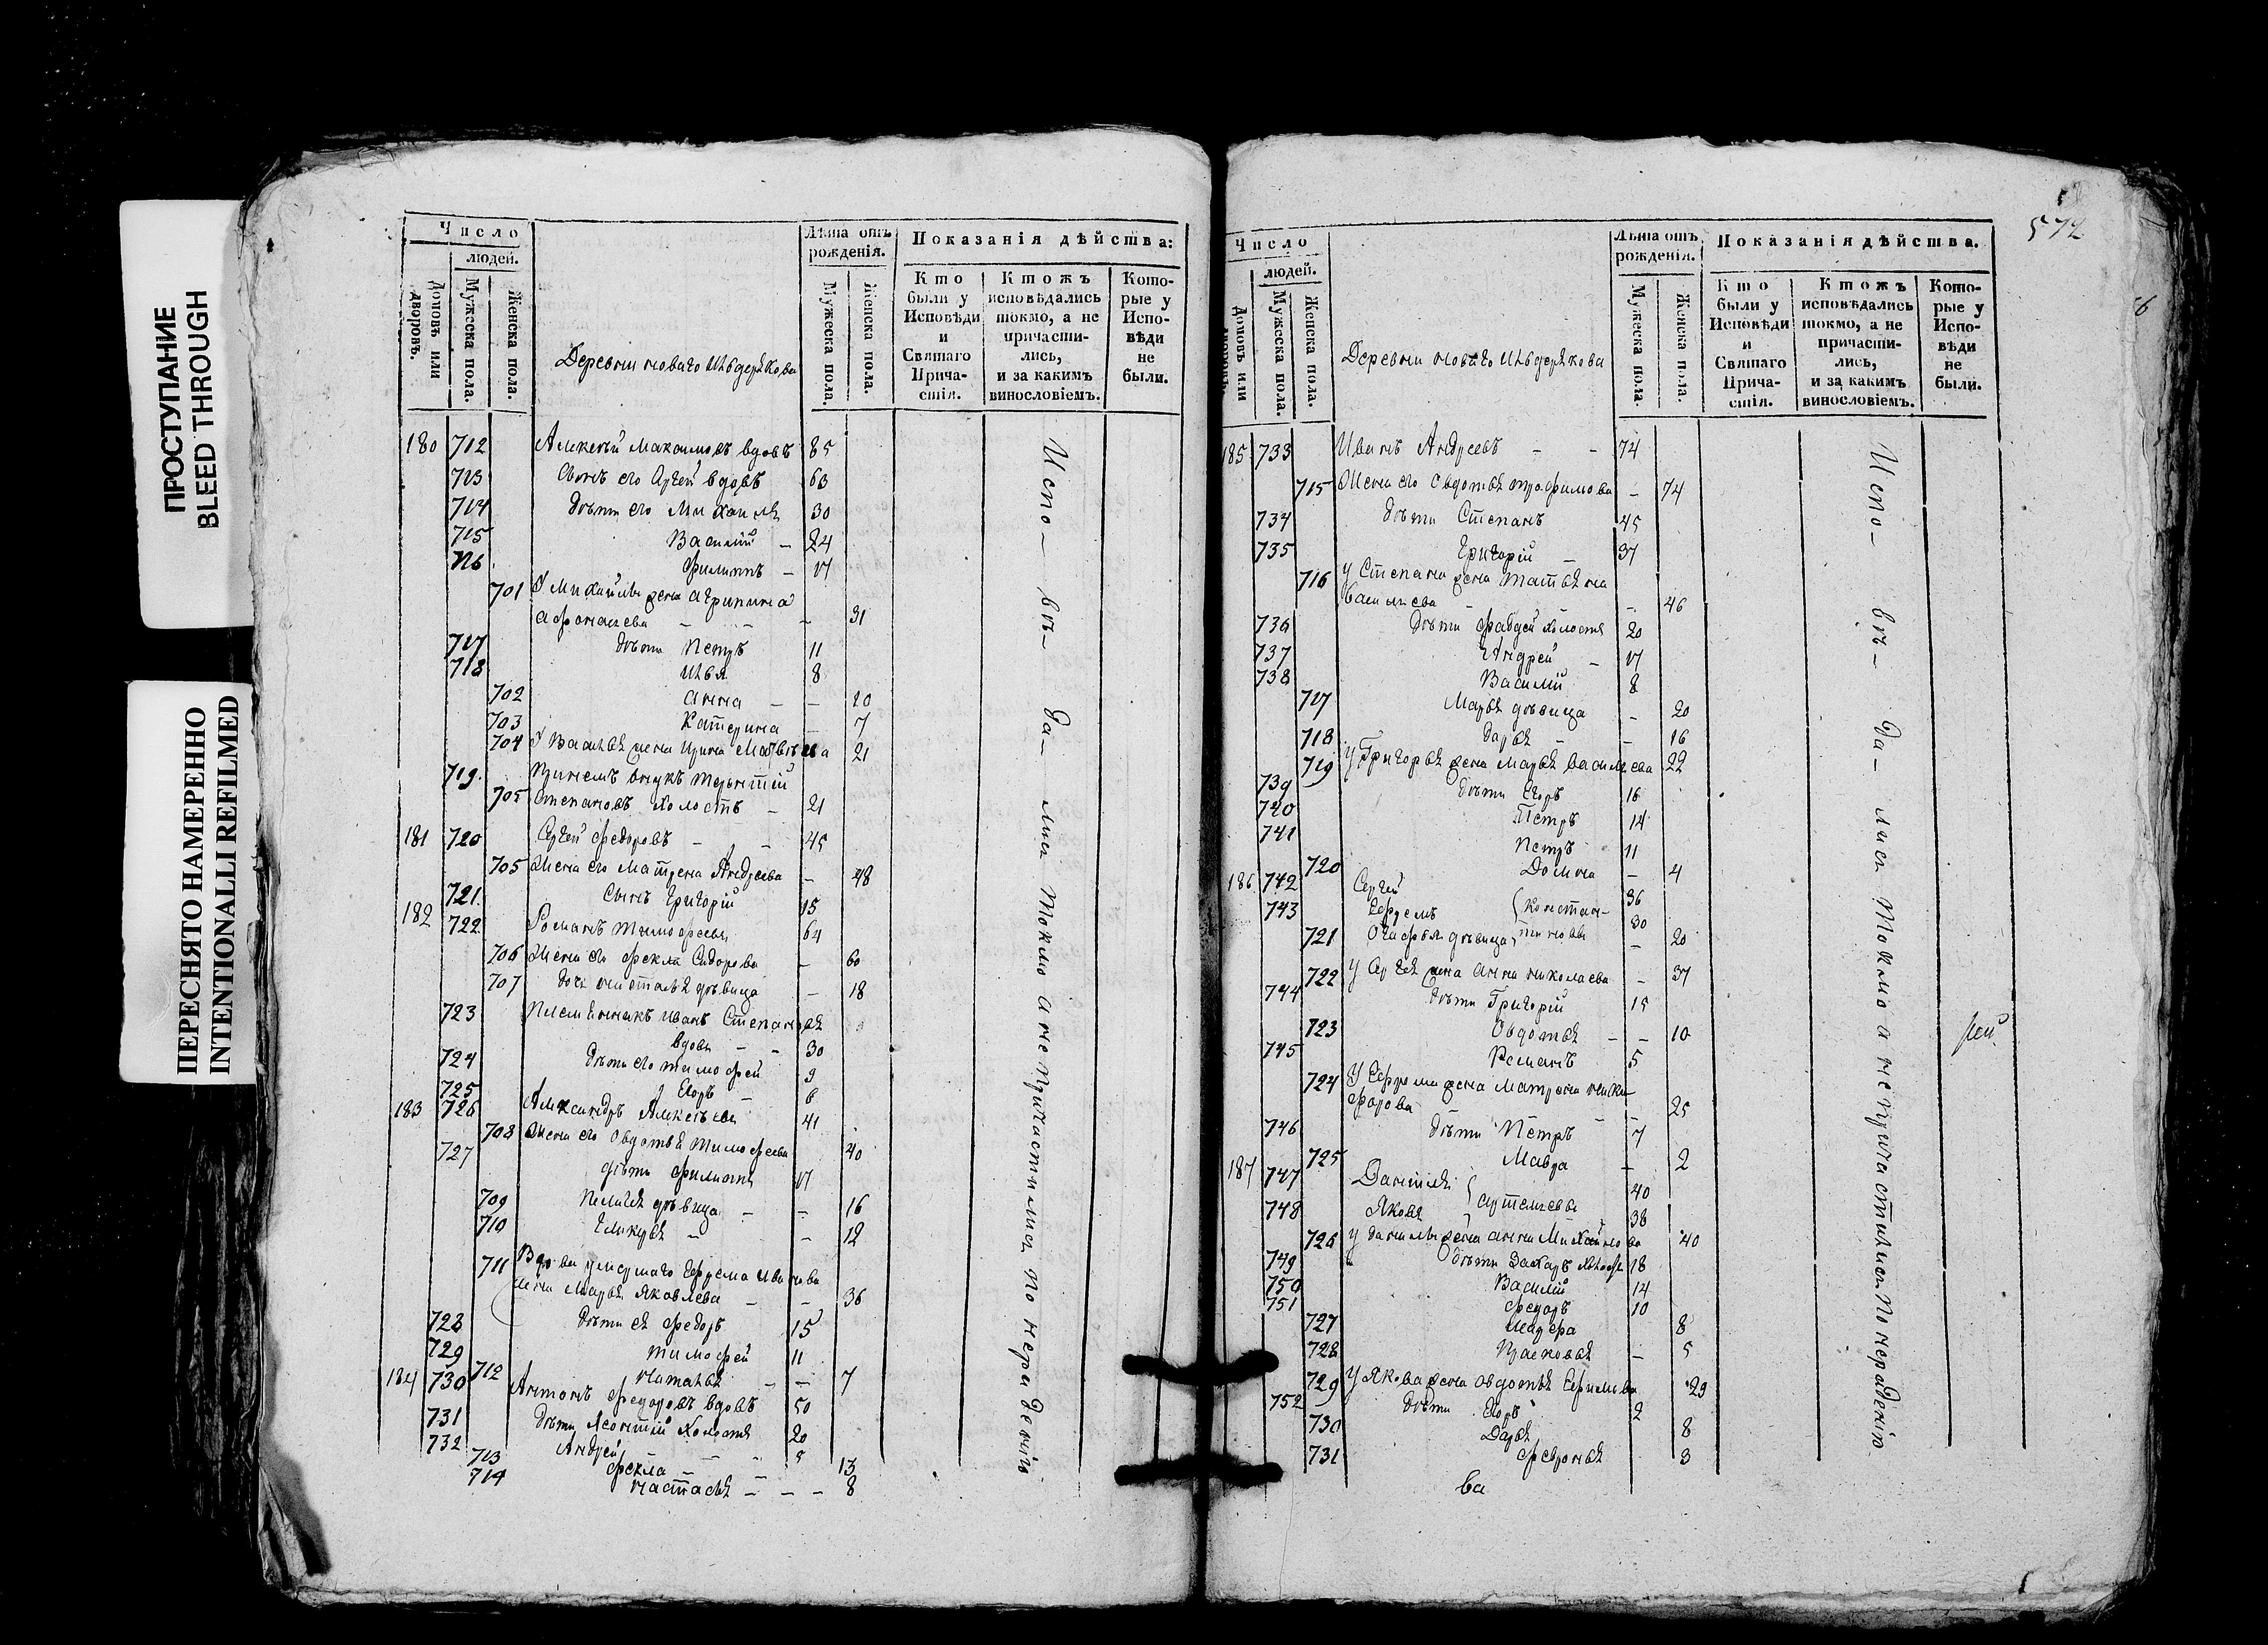 ПРОСТУПАНИЕ
BLEED THROUGH
ПЕРЕСНЯТО НАМЕРЕННО
INTENTIONALLI REFILMED
Число
людей.
Домовъ или дворовъ.
Мужеска пола.
Женска пола.
Лѣта отъ рожденія.
Мужеска пола.
Женска пола.
Показанія дѣйства:
Кто были у Исповѣди и Святаго Прича-стія.
Ктожъ исповѣдались токмо, а не причасти-лись, и за какимъ винословіемъ.
Кото-рые у Испо-вѣди не были.
Деревни новаго
180 712 Алексѣй Максимовъ вдовъ 85
713 Сынъ его Сергей вдовъ 63
714 дѣти его Михаилъ 30
715 Василій – 24
716 Филиппъ – 17
701 У Михайлы жена Агрипина
Афонасьева – – – 31
717 дѣти Петръ 11
718 Илья 8
702 Анна – – 10
703 Катерина – 7
704 У Василья жена Ирина Матвѣева 21
719. внукъ Терентий
705 Степановъ холостъ – 21
181 720 Сергей Федоровъ – – 45
705 Жена его Матрена Андреева – 48
721. Сынъ Григорій 15
182 722 Романъ Тимофеевъ 64
706 Жена его Фекла Сидорова – 60
707 дочь Настасья дѣвица – 18
723 Племянникъ Иванъ Степановъ
вдовъ – – 30
724 дѣти его Тимофей 9
725 Егоръ – 6
183 726 Александръ Алексѣевъ 41
708 Жена его Овдотья Тимофеева 40
727 дѣти Филиппъ 17
709 Пелагея дѣвица – – 16
710 – – 12
711 Вдова умершаго Ефрема Иванова
жена Марья Яковлева – – 36
728 дѣти ея Федоръ 15
729 Тимофей 11
712 Наталья – – 7
184 730 Антонъ Федоровъ вдовъ 50
731 дѣти Леонтий холостъ 20
732 Андрей – – –
713 Фекла – – 13
714 Настасья – – – 8
Испо– вѣ– да– лись токмо а не причастились по нерадению
572
Число
людей.
Домовъ или дворовъ.
Мужеска пола.
Женска пола.
Лѣта отъ рожденія.
Мужеска пола.
Женска пола.
Показанія дѣйства.
Кто были у Исповѣди и Святаго Прича-стія.
Ктожъ исповѣдались токмо, а не причасти-лись, и за какимъ винословіемъ.
Кото-рые у Испо-вѣди не были.
Деревни новаго
185 733 Иванъ Андреевъ – – 74
715 Жена его Овдотья Трофимова – 74
734 дѣти Степанъ 45
735 Григорій – 37
716 У Степана жена Татьяна
Васильева – – 46
736 дѣти Фаддей холостъ 20
737 Андрей – 17
738 Василій 8
717 Марья дѣвица – 20
718 Дарья – – 16
719 У Григорья жена Марья Васильева 22
739 дѣти Егоръ 16
720 Петръ 14
741 Петръ 11
720 Домна – 4
186 742 Сергей 36
743 Ефремъ Констан– 30
721 дѣвица тиновы – 20
722 У Сергея жена Анна Николаева – 37
744 дѣти Григорій 15
723 Овдотья – – 10
745 Романъ 5
724 У Ефрема жена Матрена Ники–
форова – – 25
746 дѣти Петръ 7
725 Мавра – 2
187 747 Данила 40
748 Яковъ Артемьевы 38
726 У Данилы жена Анна Михайлова 40
749 дѣти Захаръ 18
750 Василій 14
751 Федоръ 10
727 8
728 Прасковья – 5
729 У Якова жена Овдотья Ефимова 29
752 дѣти Егоръ 2
730 Дарья 8
731 Февронья 3
ва
Испо– вѣ– да– лись токмо а не причастились по нерадению